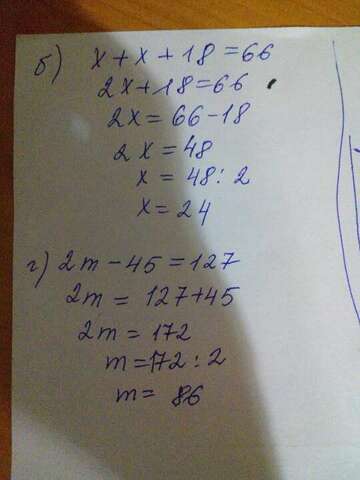 б) x + x + 18 = 66
2x + 18 = 66
2x = 66 - 18
2x = 48
x = 48 : 2
x = 24
г) 2m - 45 = 127
2m = 127 + 45
2m = 172
m = 172 : 2
m = 86